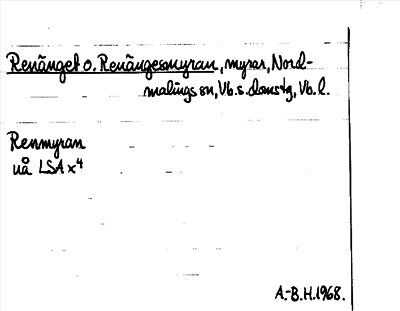 Renänget o. Renängesmyran, myrar, Nord-
malings sn, Vb.s. domstg, Vb.l.
Renmyran
uå LSA x⁴
A.-B.H.1968.